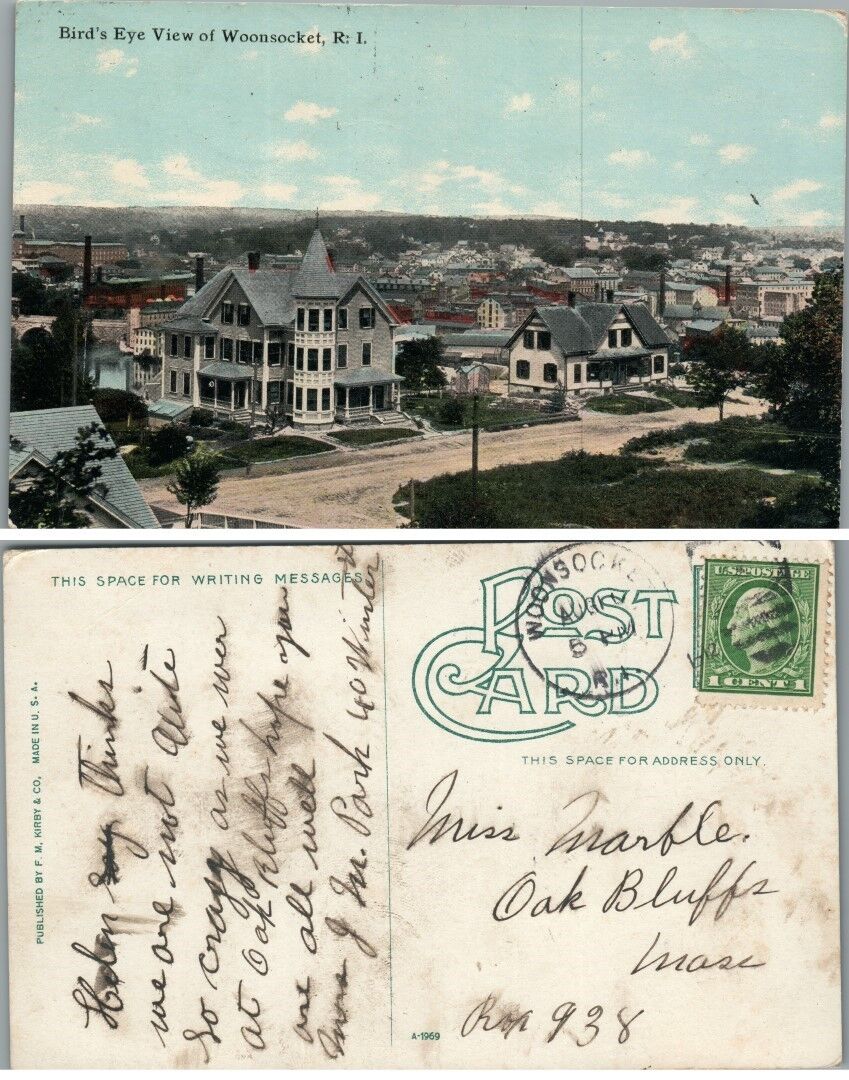 Bird's Eye View of Woonsocket, R. I.
THIS SPACE FOR WRITING MESSAGES
PUBLISHED BY F. M. KIRBY & CO. MADE IN U. S. A.
Helen Thinks
we are not Quite
so crazy as we wer
at Oak Bluffs hope you
are all well
Mrs J M. Park 40 Winter
POST
CARD
WOONSOCKET
AUG
5 PM
R.I.
U.S. POSTAGE
1 CENT 1
THIS SPACE FOR ADDRESS ONLY.
Miss Marble.
Oak Bluffs
Mass
Box 938
A-1969